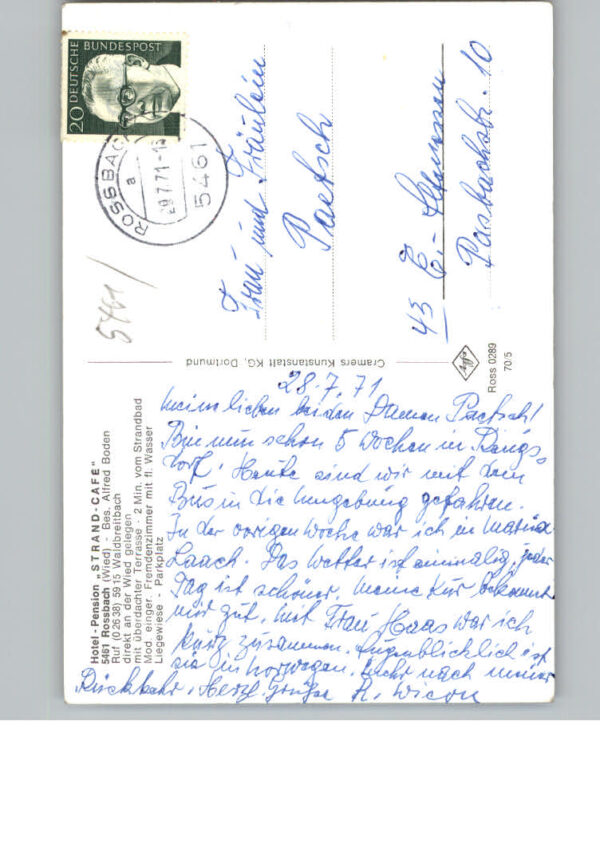 20 DEUTSCHE BUNDESPOST
ROSSBACH
a
29.7.71-1
5461
5461/
Frau und Fräulein
Paetsch
43 E.-
10
Cramers Kunstanstalt KG, Dortmund
Ross 0289
70/5
Hotel - Pension „STRAND-CAFÉ"
5461 Rossbach (Wied) - Bes. Alfred Boden
Ruf (02638) 5915 Waldbreitbach
direkt an der Wied gelegen
mit überdachter Terrasse - 2 Min. vom Strandbad
Mod. einger. Fremdenzimmer mit fl. Wasser
Liegewiese - Parkplatz
28.7.71
Meine lieben beiden Damen Paetsch!
Bin nun schon 5 Wochen in Rengs-
dorf. Heute sind wir mit dem
Bus in die Umgebung gefahren.
In der vorigen Woche war ich in Maria
Laach. Das Wetter ist einmalig, jeder
Tag ist schöner, meine Kur bekommt
mir gut, mit Frau Haas war ich
kurz zusammen. Augenblicklich ist
sie in Norwegen. mehr nach meiner
Rückkehr. Herzl. Grüße